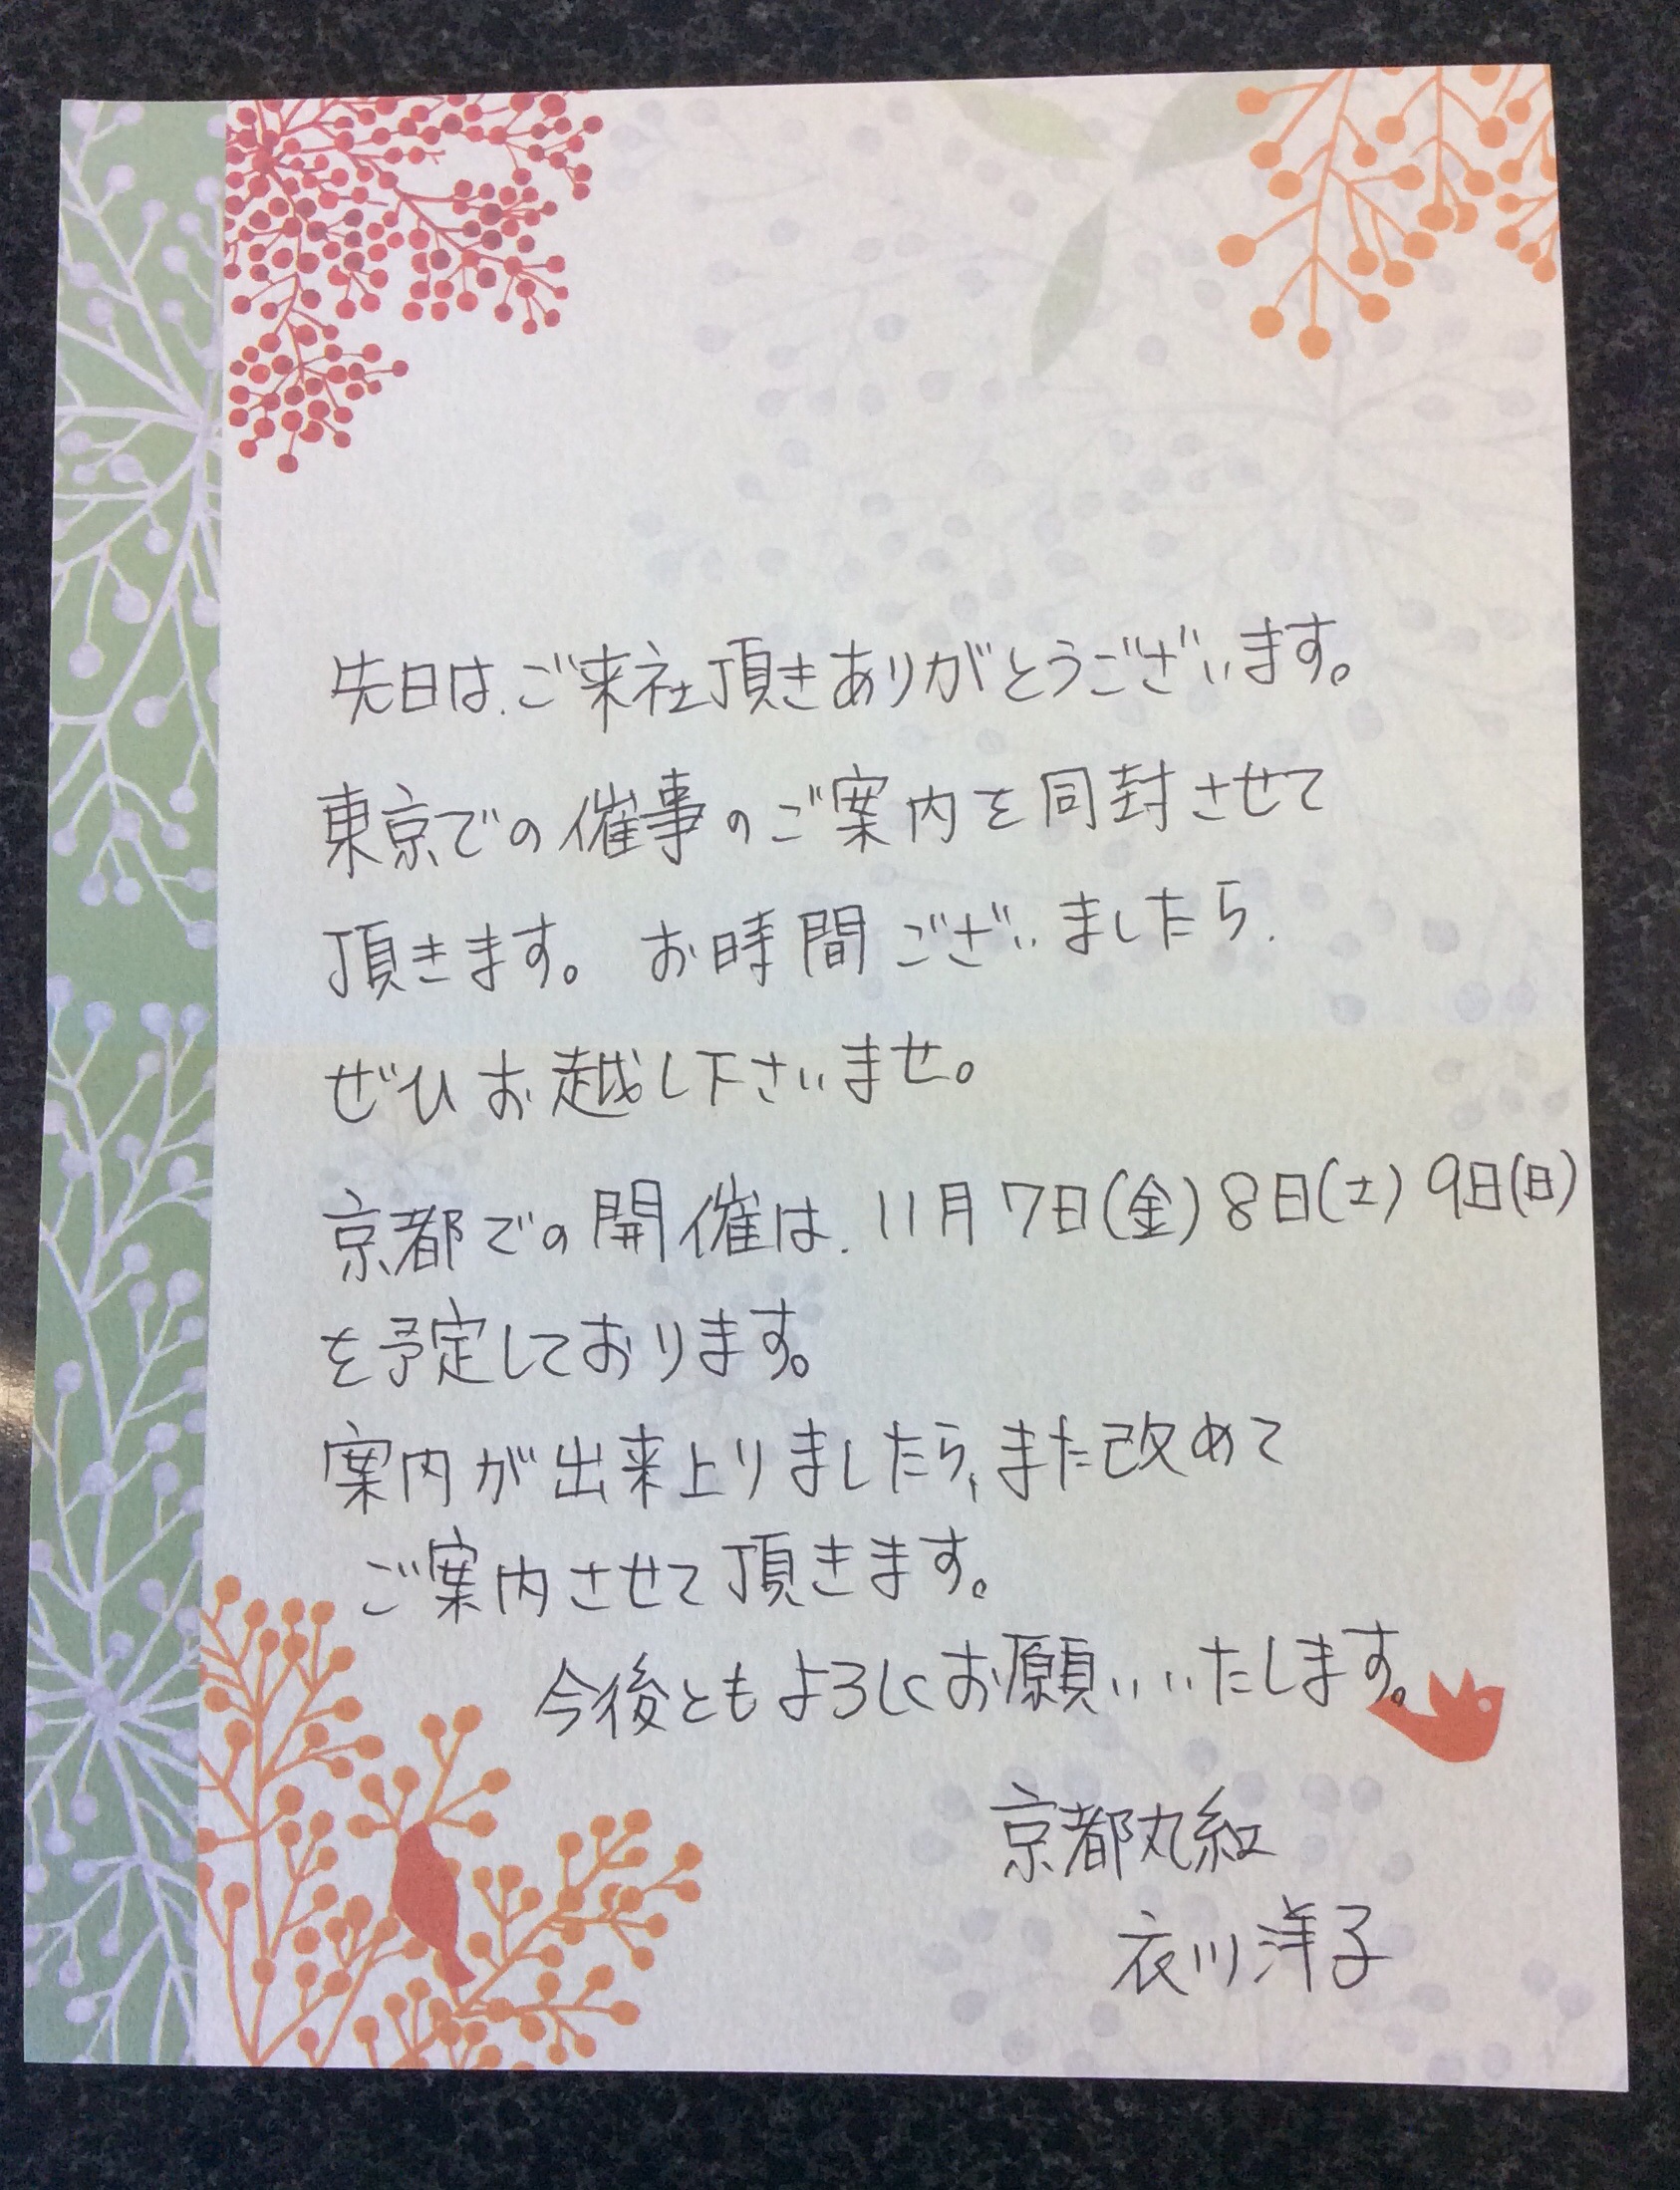 先日は、ご来社頂きありがとうございます。
東京での催事のご案内を同封させて
頂きます。お時間ございましたら、
ぜひお越し下さいませ。
京都での開催は、11月7日(金)8日(土)9日(日)
を予定しております。
案内が出来上りましたら、また改めて
ご案内させて頂きます。
今後ともよろしくお願いいたします。
京都丸紅
衣川洋子